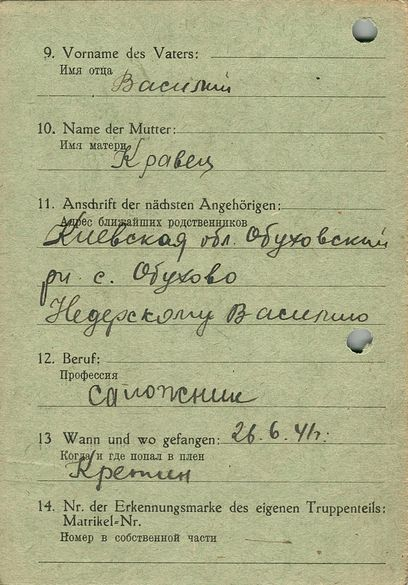 9. Vorname des Vaters:
Имя отца
Василий
10. Name der Mutter:
Имя матери
Кравец
11. Anschrift der nächsten Angehörigen:
Адрес ближайших родственников
Киевская обл. Обуховский
рн с. Обухово
Недерскому Василию
12. Beruf:
Профессия
сапожник
13 Wann und wo gefangen: 26.6.41г.
Когда и где попал в плен
14. Nr. der Erkennungsmarke des eigenen Truppenteils:
Matrikel-Nr.
Номер в собственной части